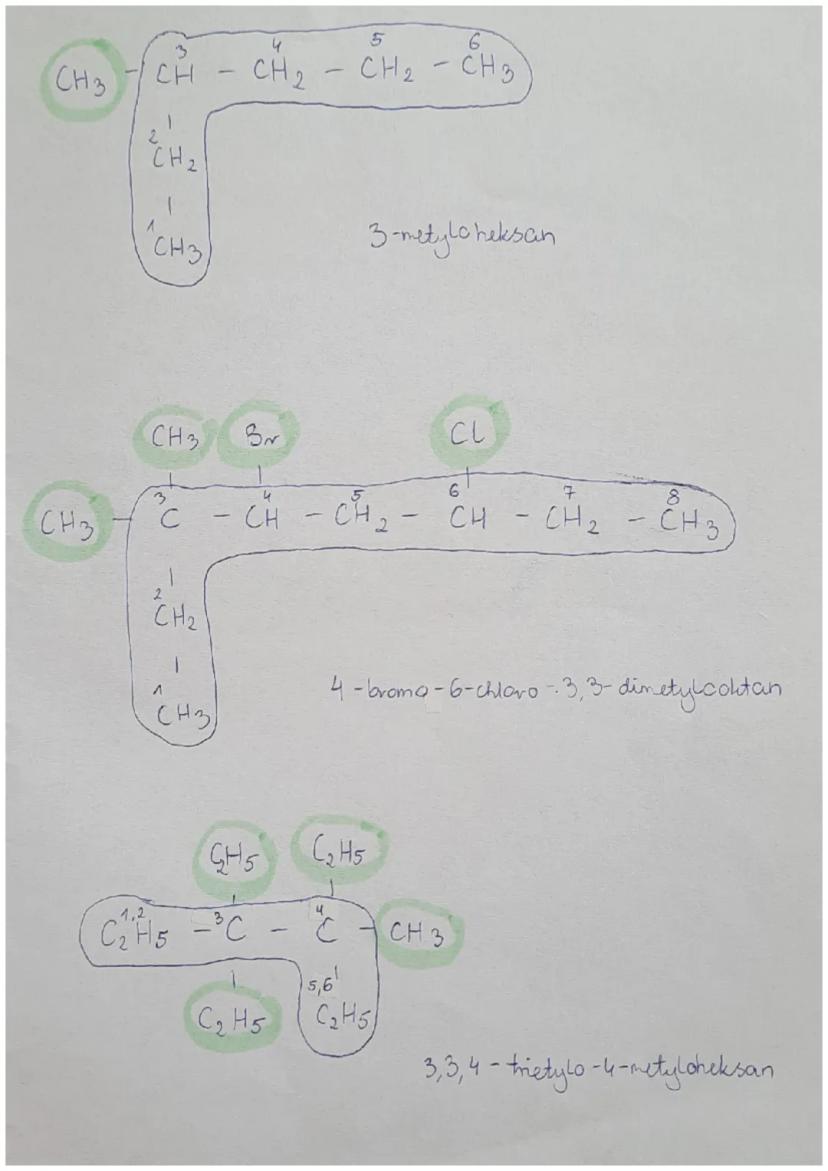 3 4 5 6
CH3 - CH - CH2 - CH2 - CH3
2
CH2
1
CH3
3-metyloheksan
CH3 Br Cl
3 4 5 6 7 8
CH3 - C - CH - CH2 - CH - CH2 - CH3
2
CH2
1
CH3
4-bromo-6-chloro-3,3-dimetylooktan
C2H5 C2H5
1,2 3 4
C2H5 - C - C - CH3
5,6
C2H5 C2H5
3,3,4-trietylo-4-metyloheksan